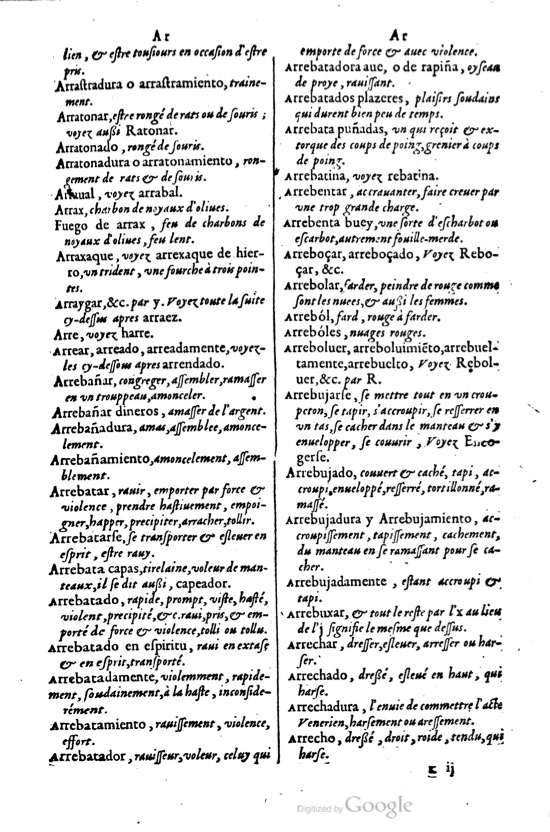 Ar
lien, & estre tousiours en occasion d'estre
pris.
Arrastradura o arrastramiento, traine-
ment.
Arratonar, estre rongé de rats ou de souris ;
voyez aussi Ratonar.
Arratonado, rongé de souris.
Arratonadura o arratonamiento, ron-
gement de rats & de souris.
voyez arrabal.
Arrax, charbon de noyaux d'oliues.
Fuego de arrax, feu de charbons de
noyaux d'oliues, feu lent.
Arraxaque, voyez arrexaque de hier-
ro, vn trident, vne fourche à trois poin-
tes.
Arraygar, &c. par y. Voyez toute la suite
cy-dessus apres arraez.
Arre, voyez harre.
Arrear, arreado, arreadamente, voyez-
les cy-dessous apres arrendado.
Arrebañar, congreger, assembler, ramasser
en vn trouppeau, amonceler.
Arrebañar dineros, amasser de l'argent.
Arrebañadura, amas, assemblee, amonce-
lement.
Arrebañamiento, amoncelement, assem-
blement.
Arrebatar, rauir, emporter par force &
violence, prendre hastiuement, empoi-
gner, happer, precipiter, arracher, tollir.
Arrebatarse, se transporter & esleuer en
esprit, estre rauy.
Arrebata capas, tirelaine, voleur de man-
teaux, il se dit aussi, capeador.
Arrebatado, rapide, prompt, viste, hasté,
violent, precipité, &c. raui, pris, & em-
porté de force & violence, tolli ou tollu.
Arrebatado en espiritu, raui en extase
& en esprit, transporté.
Arrebatadamente, violemment, rapide-
ment, soudainement, à la haste, inconside-
rément.
Arrebatamiento, rauissement, violence,
effort.
Arrebatador, rauisseur, voleur, celuy qui
Ar
emporte de force & auec violence.
Arrebatadora aue, o de rapiña, oyseau
de proye, rauissant.
Arrebatados plazeres, plaisirs soudains
qui durent bien peu de temps.
Arrebata puñadas, vn qui reçoit & ex-
torque des coups de poing, grenier à coups
de poing.
Arrebatina, voyez rebatina.
Arrebentar, accrauanter, faire creuer par
vne trop grande charge.
Arrebenta buey, vne sorte d'escharbot ou
escarbot, autrement fouille-merde.
Arreboçar, arreboçado, Voyez Rebo-
çar, &c.
Arrebolar, farder, peindre de rouge comme
sont les nuees, & aussi les femmes.
Arreból, fard, rouge à farder.
Arrebóles, nuages rouges.
Arreboluer, arreboluimiẽto, arrebuel-
tamente, arrebuelto, Voyez Rebol-
uer, &c. par R.
Arrebujarse, se mettre tout en vn crou-
peton, se tapir, s'accroupir, se resserrer en
vn tas, se cacher dans le manteau & s'y
enuelopper, se couurir, Voyez Enco-
gerse.
Arrebujado, couuert & caché, tapi, ac-
croupi, enueloppé, resserré, tortillonné, ra-
massé.
Arrebujadura y Arrebujamiento, ac-
croupissement, tapissement, cachement,
du manteau en se ramassant pour se ca-
cher.
Arrebujadamente, estant accroupi &
tapi.
Arrebuxar, & tout le reste par l'x au lieu
de l'j signifie le mesme que dessus.
Arrechar, dresser, esleuer, arresser ou har-
ser.
Arrechado, dressé, esleué en haut, qui
harse.
Arrechadura, l'enuie de commettre l'acte
Venerien, harsement ou aressement.
Arrecho, dressé, droit, roide, tendu, qui
harse.
E ij
Digitized by Google